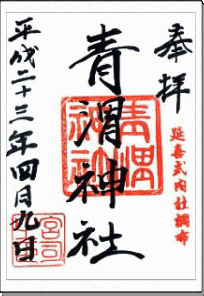 奉拝
延喜式内社調布
青渭神社
青渭神社
平成二十三年四月九日
宮司